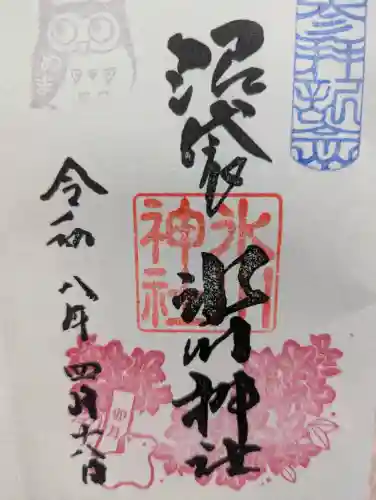 参拝記念
沼袋
氷川神社
氷川
神社
令和八年四月十八日
卯月